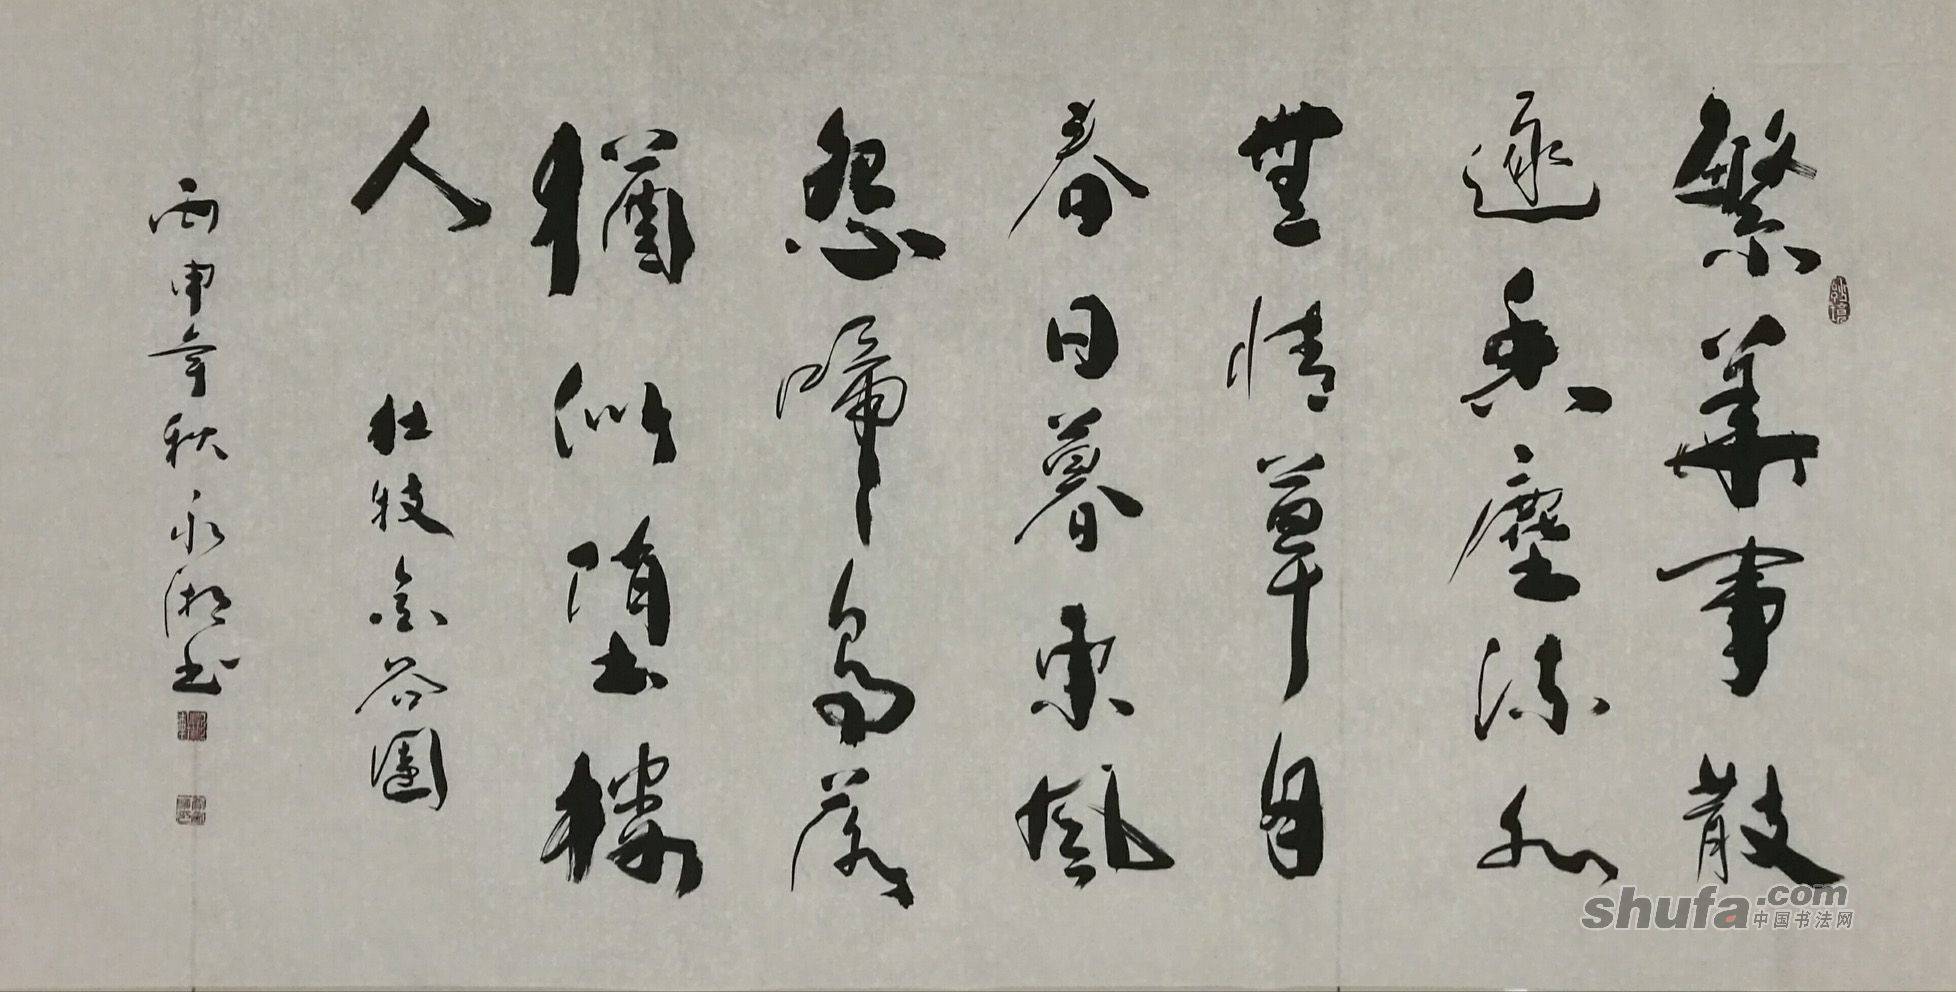 繁華事散
逐香塵流水
無情草自
春日暮東風
怨啼鳥落
猶似墮樓
人 杜牧金谷園
丙申年秋永湘書
shufa.com
中国书法网